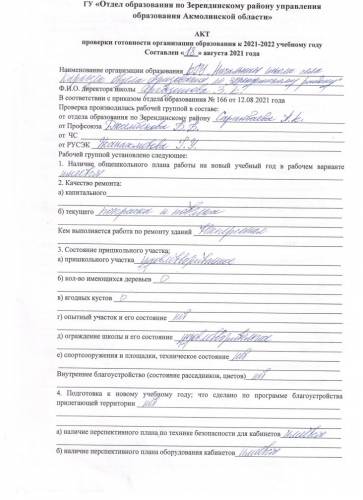 ГУ «Отдел образования по Зерендинскому району управления
образования Акмолинской области»
АКТ
проверки готовности организации образования к 2021-2022 учебному году
Составлен « 18 » августа 2021 года
Наименование организации образования КГУ Начальная школа села
отдела образования по Зерендинскому району
Ф.И.О. директора школы
В соответствии с приказом отдела образования № 166 от 12.08.2021 года
Проверка производилась рабочей группой в составе:
от отдела образования по Зерендинскому району
от Профсоюза
от ЧС
от РУСЭК
Рабочей группой установлено следующее:
1. Наличие общешкольного плана работы на новый учебный год в рабочем варианте
имеется
2. Качество ремонта:
а) капитального
б) текущего покраска и побелка
Кем выполняется работа по ремонту зданий
3. Состояние пришкольного участка:
а) пришкольного участка удовлетворительное
б) кол-во имеющихся деревьев 0
в) ягодных кустов 0
г) опытный участок и его состояние нет
д) ограждение школы и его состояние удовлетворительное
е) спортсооружения и площадки, техническое состояние нет
Внутреннее благоустройство (состояние рассадников, цветов) нет
4. Подготовка к новому учебному году; что сделано по программе благоустройства
прилегающей территории нет
а) наличие перспективного плана по технике безопасности для кабинетов имеется
б) наличие перспективного плана оборудования кабинетов имеется